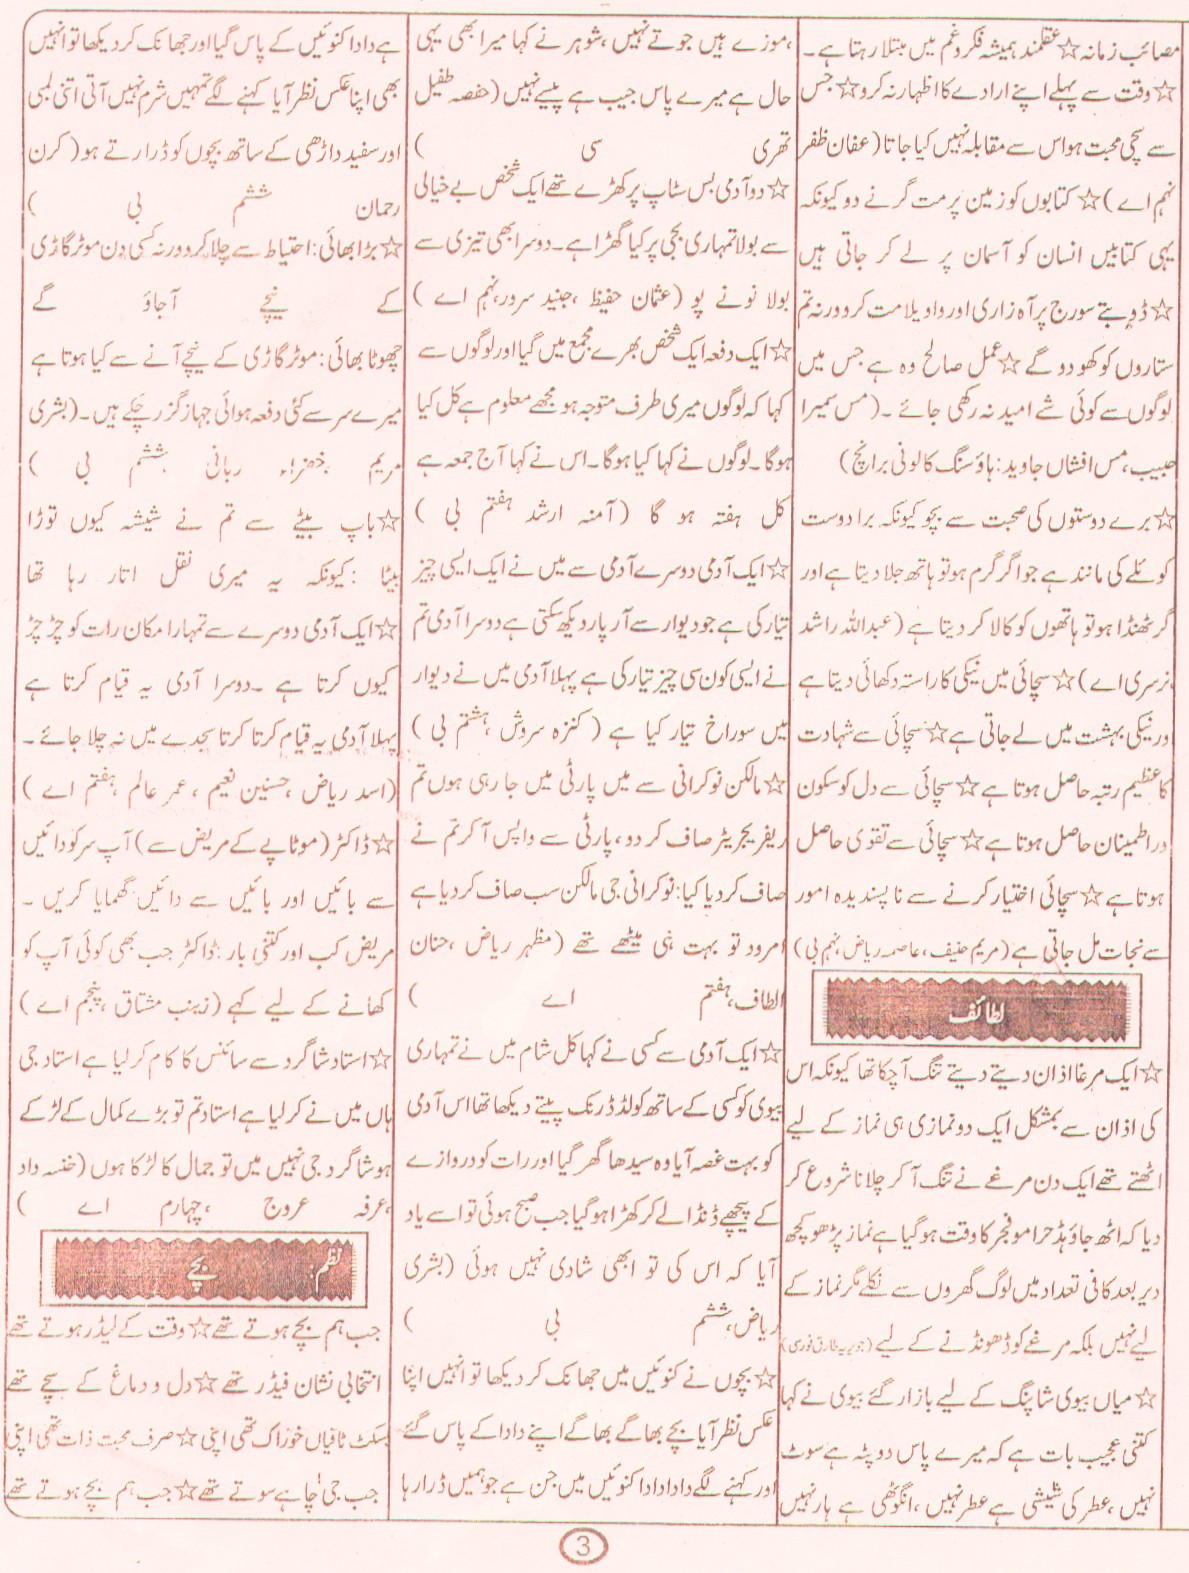 مصائب زمانہ ☆ عقلمند ہمیشہ فکر و غم میں مبتلا رہتا ہے۔
☆ وقت سے پہلے اپنے ارادے کا اظہار نہ کرو ☆ جس
سے سچی محبت ہو اس سے مقابلہ نہیں کیا جاتا (عفان ظفر
نہم اے) ☆ کتابوں کو زمین پر مت گرنے دو کیونکہ
یہی کتابیں انسان کو آسمان پر لے کر جاتی ہیں
☆ ڈوبتے سورج پر آہ زاری اور واویلا مت کرو ورنہ تم
ستاروں کو کھو دو گے ☆ عمل صالح وہ ہے جس میں
لوگوں سے کوئی شے امید نہ رکھی جائے۔ (مس سمیرا
حبیب، مس افشاں جاوید: ہاؤسنگ کالونی برانچ)
☆ برے دوستوں کی صحبت سے بچو کیونکہ برا دوست
کوئلے کی مانند ہے جو اگر گرم ہو تو ہاتھ جلا دیتا ہے اور
گر ٹھنڈا ہو تو ہاتھوں کو کالا کر دیتا ہے (عبداللہ راشد
نرسری اے) ☆ سچائی میں نیکی کا راستہ دکھائی دیتا ہے
ور نیکی بہشت میں لے جاتی ہے ☆ سچائی سے شہادت
کا عظیم رتبہ حاصل ہوتا ہے ☆ سچائی سے دل کو سکون
در اطمینان حاصل ہوتا ہے ☆ سچائی سے تقوی حاصل
ہوتا ہے ☆ سچائی اختیار کرنے سے ناپسندیدہ امور
سے نجات مل جاتی ہے (مریم حنیف، عاصمہ ریاض، نہم بی)
لطائف
☆ ایک مرغا اذان دیتے دیتے تنگ آ چکا تھا کیونکہ اس
کی اذان سے بمشکل ایک دو نمازی ہی نماز کے لیے
اٹھتے تھے ایک دن مرغے نے تنگ آ کر چلانا شروع کر
دیا کہ اٹھ جاؤ ہڈحرامو فجر کا وقت ہو گیا ہے نماز پڑھو کچھ
دیر بعد کافی تعداد میں لوگ گھروں سے نکلے مگر نماز کے
لیے نہیں بلکہ مرغے کو ڈھونڈنے کے لیے (جویریہ طارق فوری)
☆ میاں بیوی شاپنگ کے لیے بازار گئے بیوی نے کہا
کتنی عجیب بات ہے کہ میرے پاس دوپٹہ ہے سوٹ
نہیں، عطر کی شیشی ہے عطر نہیں، انگوٹھی ہے ہار نہیں
،موزے ہیں جوتے نہیں، شوہر نے کہا میرا بھی یہی
حال ہے میرے پاس جیب ہے پیسے نہیں (حفصہ طفیل
تھری سی)
☆ دو آدمی بس سٹاپ پر کھڑے تھے ایک شخص بے خیالی
سے بولا تمہاری بجی پر کیا گھڑا ہے۔ دوسرا بھی تیزی سے
بولا نونے پو (عثمان حفیظ، جنید سرور، نہم اے)
☆ ایک دفعہ ایک شخص بھرے مجمع میں گیا اور لوگوں سے
کہا کہ لوگوں میری طرف متوجہ ہو مجھے معلوم ہے کل کیا
ہوگا۔ لوگوں نے کہا کیا ہوگا۔ اس نے کہا آج جمعہ ہے
کل ہفتہ ہو گا (آمنہ ارشد ہفتم بی)
☆ ایک آدمی دوسرے آدمی سے میں نے ایک ایسی چیز
تیار کی ہے جو دیوار سے آر پار دیکھ سکتی ہے دوسرا آدمی تم
نے ایسی کون سی چیز تیار کی ہے پہلا آدمی میں نے دیوار
میں سوراخ تیار کیا ہے (کنزہ سروش، ہشتم بی)
☆ مالکن نوکرانی سے میں پارٹی میں جا رہی ہوں تم
ریفریجریٹر صاف کر دو، پارٹی سے واپس آ کر تم نے
صاف کر دیا کیا: نوکرانی جی مالکن سب صاف کر دیا ہے
امرود تو بہت ہی میٹھے تھے (مظہر ریاض، حنان
الطاف، ہفتم اے)
☆ ایک آدمی سے کسی نے کہا کل شام میں نے تمہاری
بیوی کو کسی کے ساتھ کولڈ ڈرنک پیتے دیکھا تھا اس آدمی
کو بہت غصہ آیا وہ سیدھا گھر گیا اور رات کو دروازے
کے پیچھے ڈنڈا لے کر کھڑا ہو گیا جب صبح ہوئی تو اسے یاد
آیا کہ اس کی تو ابھی شادی نہیں ہوئی (بشری
ریاض، ششم بی)
☆ بچوں نے کنوئیں میں جھانک کر دیکھا تو انہیں اپنا
عکس نظر آیا بچے بھاگے بھاگے اپنے دادا کے پاس گئے
اور کہنے لگے دادا دادا کنوئیں میں جن ہے جو ہمیں ڈرا رہا
ہے دادا کنوئیں کے پاس گیا اور جھانک کر دیکھا تو انہیں
بھی اپنا عکس نظر آیا کہنے لگے تمہیں شرم نہیں آتی اتنی لمبی
اور سفید داڑھی کے ساتھ بچوں کو ڈراتے ہو (کرن
رحمان ششم بی)
☆ بڑا بھائی: احتیاط سے چلا کرو ورنہ کسی دن موٹر گاڑی
کے نیچے آ جاؤ گے
چھوٹا بھائی: موٹر گاڑی کے نیچے آنے سے کیا ہوتا ہے
میرے سر سے کئی دفعہ ہوائی جہاز گزر چکے ہیں۔ (بشری
مریم، خضراء ربانی ششم بی)
☆ باپ بیٹے سے تم نے شیشہ کیوں توڑا
بیٹا: کیونکہ یہ میری نقل اتار رہا تھا
☆ ایک آدمی دوسرے سے تمہارا مکان رات کو چڑ چڑ
کیوں کرتا ہے۔ دوسرا آدمی یہ قیام کرتا ہے
پہلا آدمی یہ قیام کرتا کرتا سجدے میں نہ چلا جائے۔
(اسد ریاض، حسنین نعیم، عمر عالم، ہفتم اے)
☆ ڈاکٹر (موٹاپے کے مریض سے) آپ سر کو دائیں
سے بائیں اور بائیں سے دائیں گھمایا کریں۔
مریض کب اور کتنی بار: ڈاکٹر جب بھی کوئی آپ کو
کھانے کے لیے کہے (زینب مشتاق، پنجم اے)
☆ استاد شاگرد سے سائنس کا کام کر لیا ہے استاد جی
ہاں میں نے کر لیا ہے استاد تم تو بڑے کمال کے لڑکے
ہو شاگرد جی نہیں میں تو جمال کا لڑکا ہوں (خنسہ داد
،عرفہ عروج، چہارم اے)
نظم: بچے
جب ہم بچے ہوتے تھے ☆ وقت کے لیڈر ہوتے تھے
انتخابی نشان فیڈر تھے ☆ دل و دماغ کے سچے تھے
بسکٹ ٹافیاں خوراک تھی اپنی ☆ صرف محبت ذات تھی اپنی
جب جی چاہے سوتے تھے ☆ جب ہم بچے ہوتے تھے
3